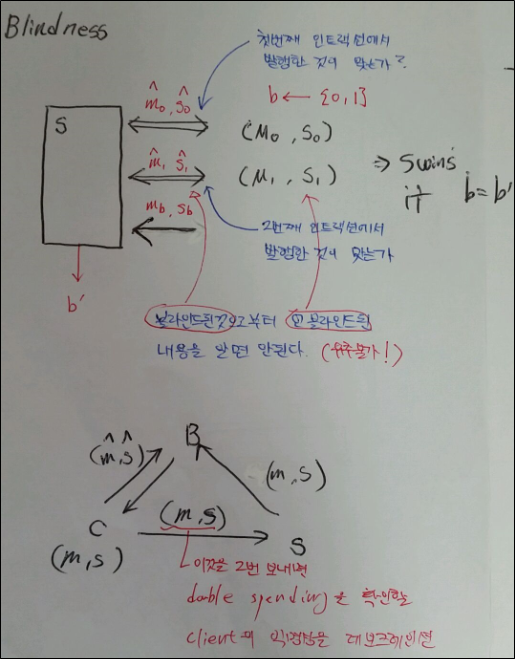 Blindness
첫번째 인트랙션에서
발행한 것이 맞는가?
m̂₀, ŝ₀
b ← {0,1}
S
(M₀, S₀)
m̂₁, ŝ₁
(M₁, S₁)
⇒ S wins
if b = b'
m_b, s_b
2번째 인트랙션에서
발행한 것이 맞는가
b'
블라인드된것으로부터 언블라인드된
내용을 알면 안된다. (유추불가!)
B
(m̂, ŝ)
(m, s)
(m, s)
C
S
(m, s)
이것을 2번 보내면
double spending을 확인할
client의